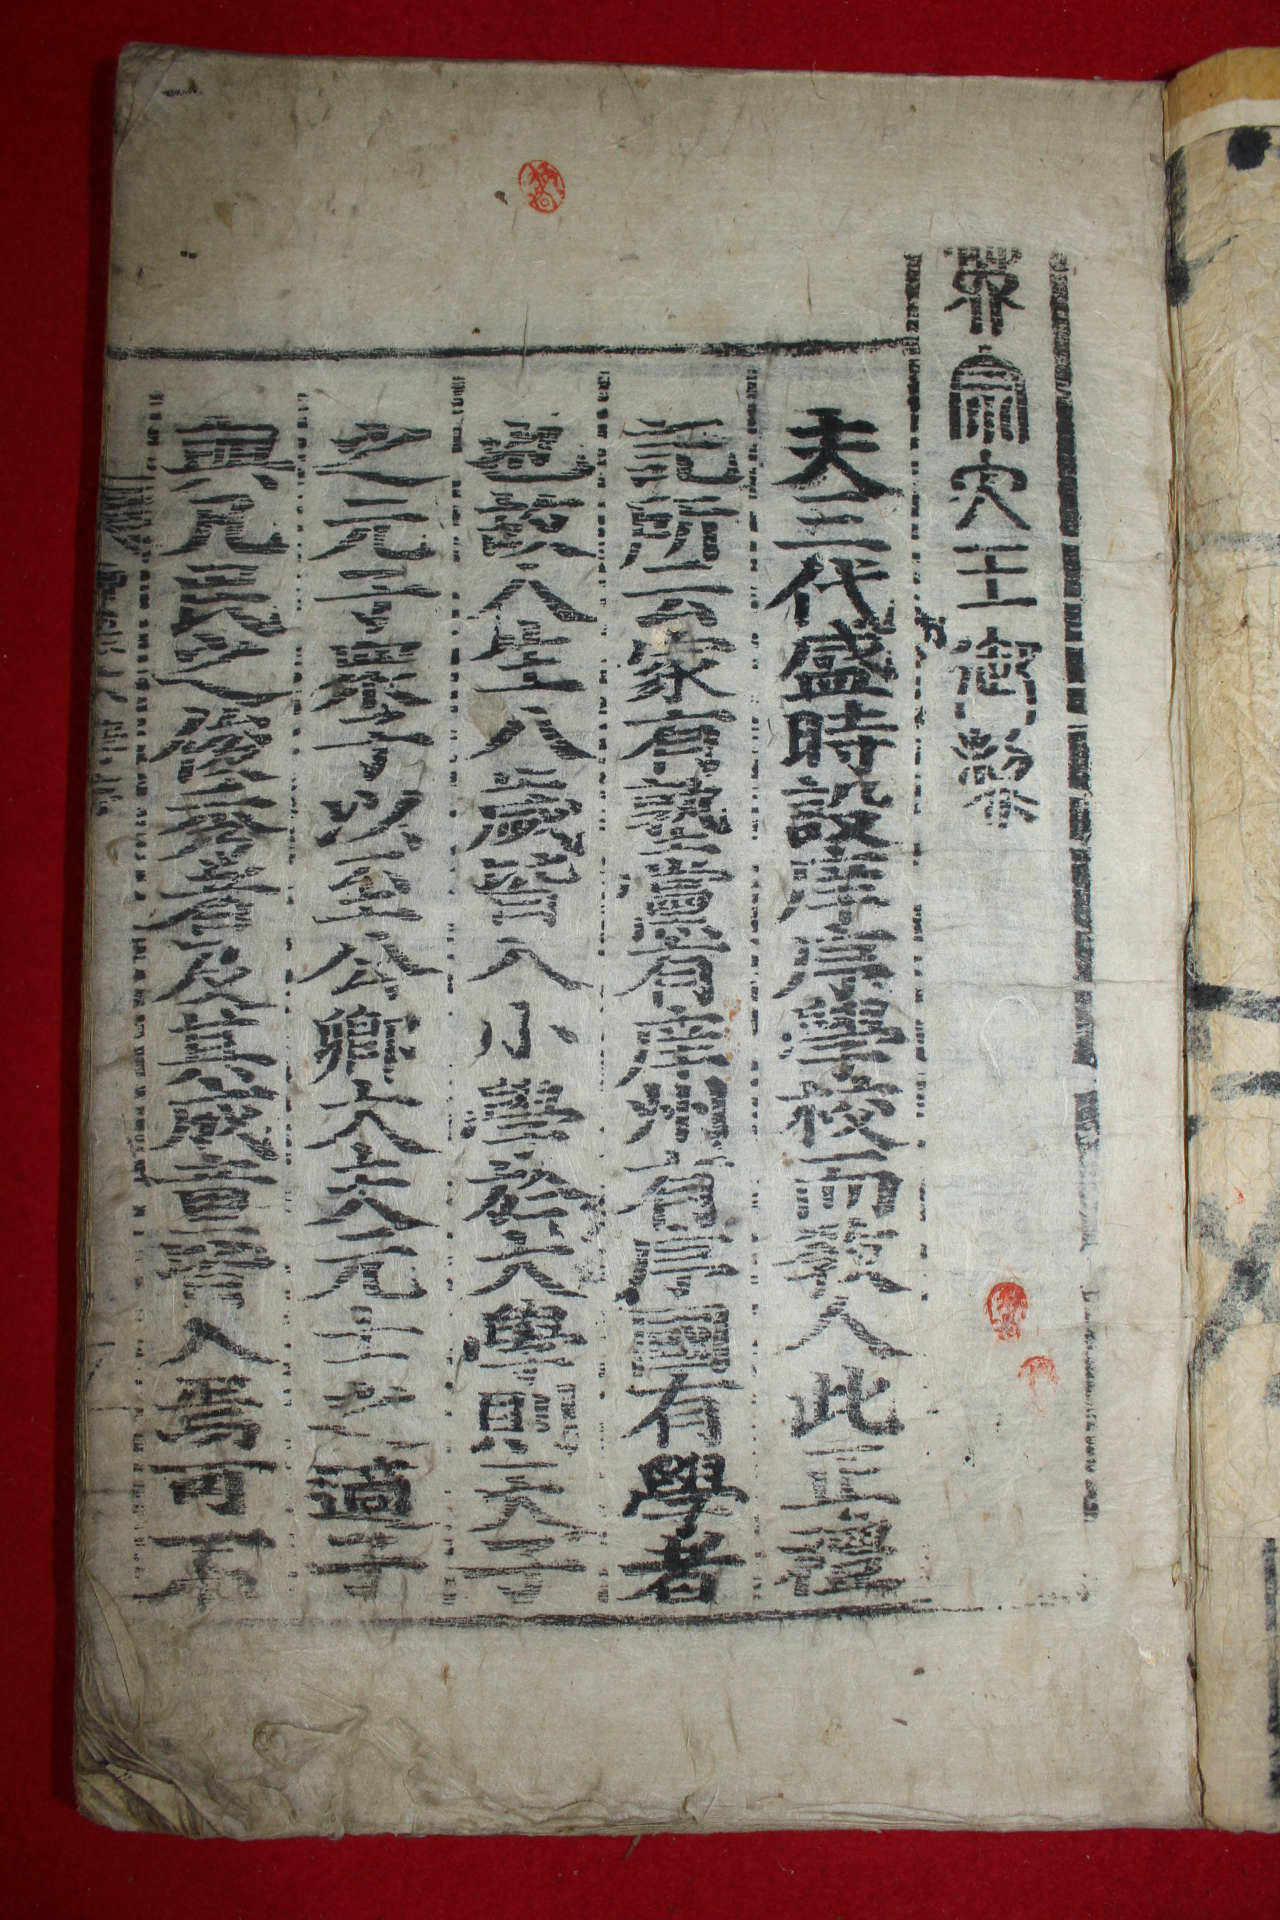 宗大王御製
夫三代盛時設庠序學校而敎人此正禮
記所云家有塾黨有庠州有序國有學者
也故人生八歲皆入小學於大學則天子
之元子衆子以至公卿大夫元士之適子
與凡民之俊秀者及其成童皆入焉可不